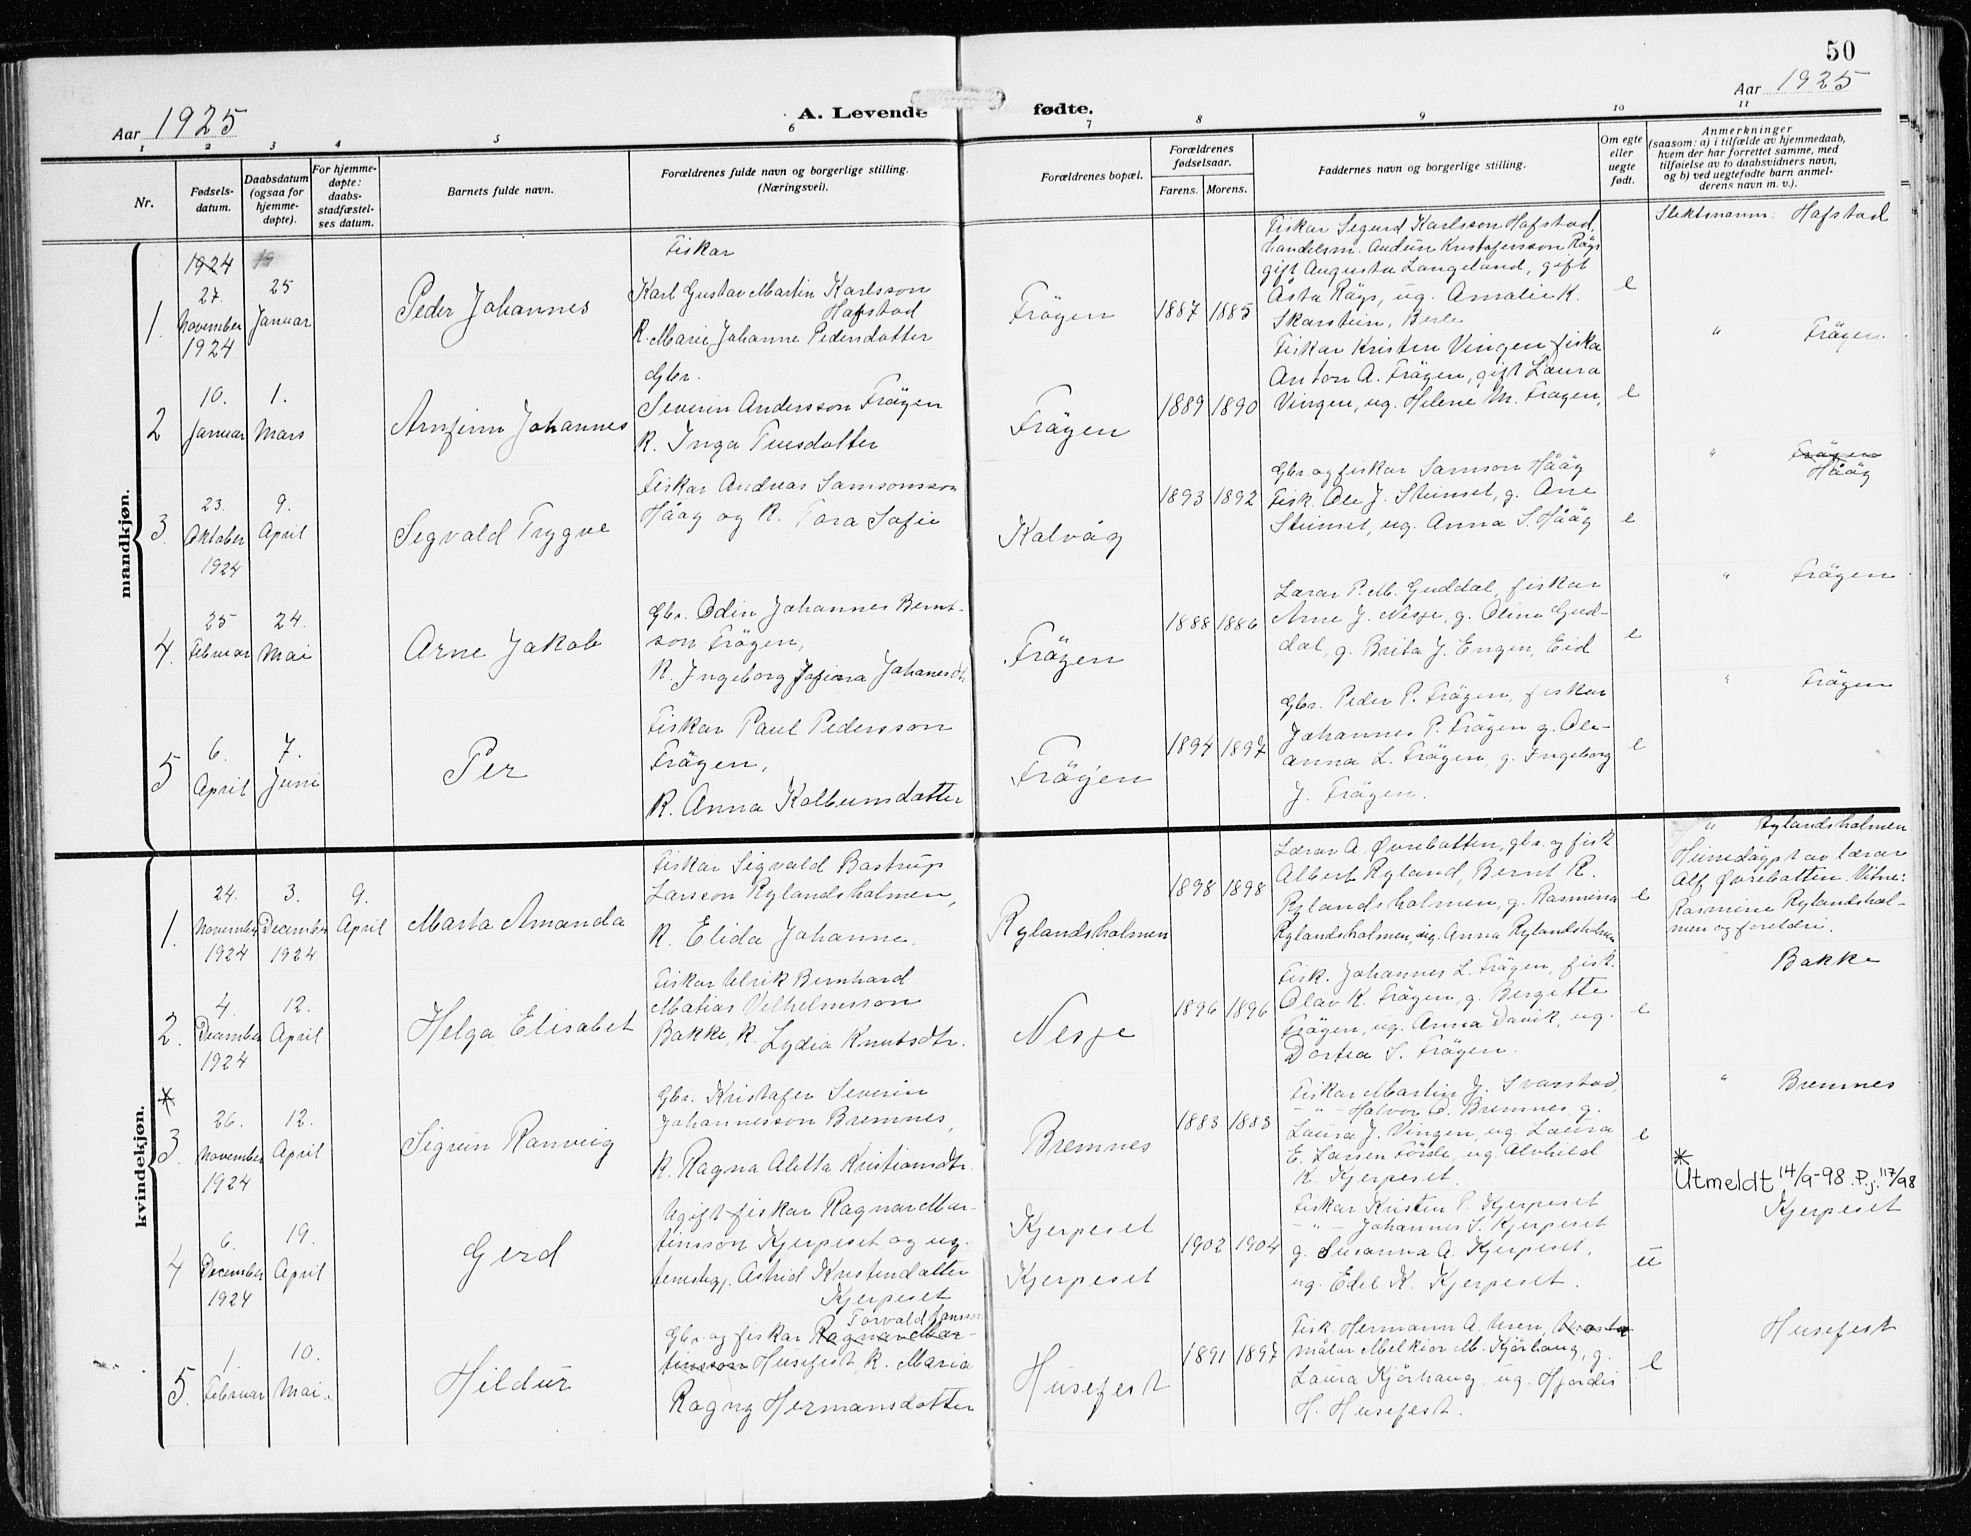 50
Aar 1925
A. Levende fødte.
Aar 1925
1 2 3 4 5 6 7 8 9 10 11
Nr.
Fødsels-
datum.
Daabsdatum
(ogsaa for
hjemme-
døpte).
For hjemme-
døpte:
daabs-
stadfæstel-
ses datum.
Barnets fulde navn.
Forældrenes fulde navn og borgerlige stilling.
(Næringsvei).
Forældrenes bopæl.
Forældrenes
fødselsaar.
Farens. Morens.
Faddernes navn og borgerlige stilling.
Om egte
eller
uegte
født.
Anmerkninger
(saasom: a) i tilfælde av hjemmedaab,
hvem der har forrettet samme, med
tilføielse av to daabsvidners navn,
og b) ved uegtefødte barn anmel-
derens navn m. v.).
mandkjøn.
1.
1924
27.
November
1924
25
Januar
Peder Johannes
Fiskar
Karl Gustav Martin Karlsson
Hafstad
K. Marie Johanne Pedersdatter
Frögen
1887 1885
Fiskar Segurd Karlsson Hafstad,
handelsm. Andún Kristofersson Rågs
gift Augusta Langeland, gift
Åsta Rågs, ug. Amalie K.
Skarstein, Berle
e
Slektsnamn: Hafstad
2
10.
Januar
1.
Mars
Arnfinn Johannes
Gbr.
Severin Andersson Frögen
K. Inga Tuesdatter
Frögen
1889 1890
Fiskar Kristen Vingen, fiska
Anton A. Frögen, gift Laura
Vingen, ug. Helene M. Frögen,
e
" Frögen
3.
23.
Oktober
1924
9.
April
Segvald Trygve
Fiskar Andreas Samsonsson
Hååg og K. Tora Sofie
Kalvåg
1893 1892
Gbr og fiskar Samson Hååg
Fisk. Ole J. Steinset, g. Ane
Steinset, ug. Anna S. Hååg
e
" Frögen
Hååg
4.
25
Februar
24.
Mai
Arne Jakob
Gbr. Odin Johannes Bernt-
son Frögen,
K. Ingeborg Josfina Johanesdt.
Frögen
1888 1886
Lærar P. M. Guddal, fiskar
Arne J. Nesje, g. Oline Gud-
dal, g. Brita J. Engen, Eid
e
" Frögen
5
6.
April
7.
Juni
Per
Fiskar Paul Pedersson
Frögen,
K. Anna Kolbeinsdatter
Frögen
1894 1897
Gbr. Peder P. Frögen, fiskar
Johannes P. Frögen g. Ole-
anna L. Frögen, g. Ingeborg
J. Frögen.
e
" Frögen
kvindekjøn.
1.
24.
November
1924
3.
December
1924
9.
April
Marta Amanda
Fiskar Sigvald Bastrup
Larsson Rylandsholmen,
K. Elida Johanne.
Rylandsholmen
1898 1898
Lærar A. Øvrebotten, gbr. og fisk.
Albert Ryland, Bernt R.
Rylandsholmen, g. Rasmina
Rylandsholmen, ug. Anna Rylandsholmen
e
" Rylandsholmen
Heimedöypt av lærar
Alf Øvrebotten. Vitne:
Rasmine Rylandshol-
men og foreldri.
2.
4.
December
1924
12.
April
Helga Elisabet
Fiskar Ulrik Bernhard
Matias Velhelmsson
Bakke, K. Lydia Knutsdtr.
Nesje
1896 1896
Fisk. Johannes L. Frögen, fisk.
Olav K. Frögen, g. Bergitte
Frögen, ug. Anna Davik, ug.
Dortea S. Frögen.
e
" Bakke
*
3.
26.
November
1924
12.
April
Sigrun Ranveig
Gbr. Kristofer Severin
Johannesson Bremnes,
K. Ragna Aletta Kristiansdtr.
Bremnes
1883 1883
Fiskar Martin J. Svarstad,
- " - Halvor O. Bremnes, g.
Laura J. Vingen, ug. Laura
E. Larsen Förde, ug. Alvhild
K. Kjerpeset.
e
" Bremnes
*
Utmeldt 14/9-98. P.j. 117/98
4
6.
December
1924
19.
April
Gerd
Ugift fiskar Ragnar Mar-
tinsson Kjerpeset og ug.
tenestegj. Astrid Kristendatter
Kjerpeset
Kjerpeset
Kjerpeset
1902 1904
Fiskar Kristen P. Kjerpeset
- " - Johannes S. Kjerpeset
g. Susanna A. Kjerpeset,
ug. Edel K. Kjerpeset.
u
Kjerpeset
5.
1.
Februar
10.
Mai.
Hildur
Torvald Jansson
Gbr og fiskar Ragnar Mar-
tinsson Husefest, K. Maria
Ragna Hermansdatter
Husefest
1891 1897
Fisk. Hermann A. Uren,
målar Melkior M. Kjörhaug, g.
Laura Kjörhaug, ug. Hjördis
H. Husefest.
e
Husefest